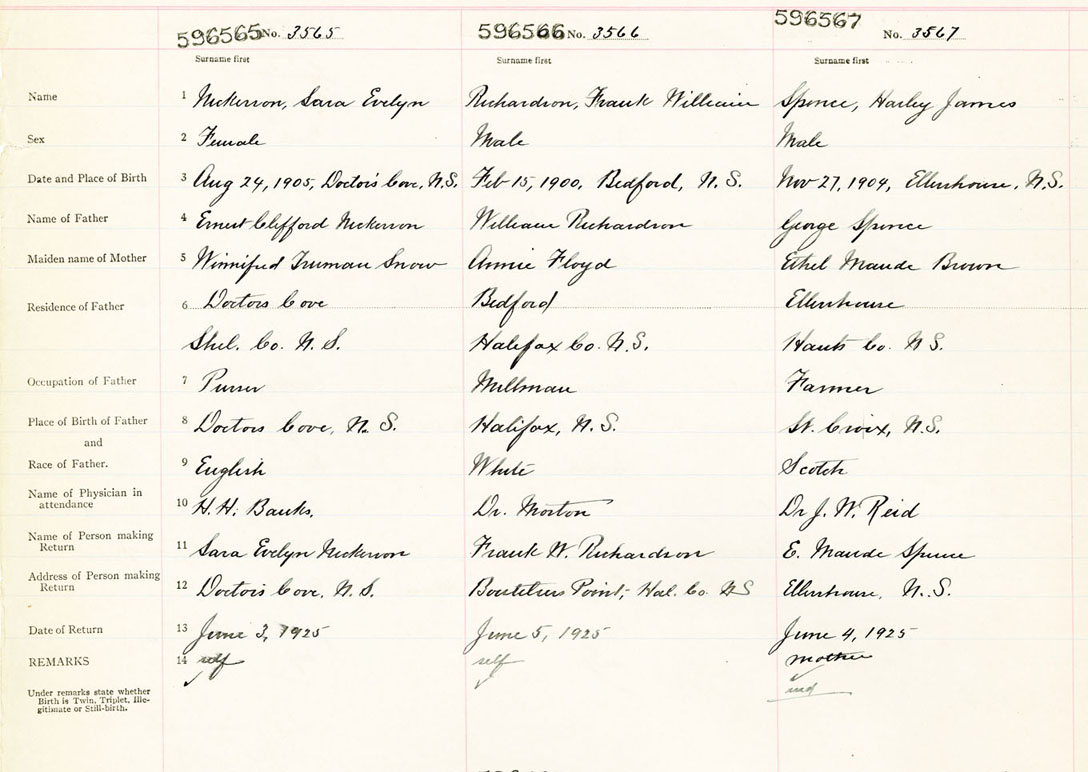 596565 No. 3565 596566 No. 3566 596567 No. 3567
Surname first Surname first Surname first
Name 1 Nickerson, Sara Evelyn Richardson, Frank William Spence, Harley James
Sex 2 Female Male Male
Date and Place of Birth 3 Aug 24, 1905, Doctor's Cove, N.S. Feb 15, 1900, Bedford, N. S. Nov 27, 1904, Ellershouse, N.S.
Name of Father 4 Ernest Clifford Nickerson William Richardson George Spence
Maiden name of Mother 5 Winnifred Truman Snow Annie Floyd Ethel Maude Brown
Residence of Father 6 Doctors Cove Bedford Ellershouse
Shel. Co. N. S. Halifax Co. N.S. Hants Co. N S.
Occupation of Father 7 Millman Farmer
Place of Birth of Father 8 Doctors Cove, N. S. Halifax, N. S. St. Croix, N.S.
and
Race of Father. 9 English White Scotch
Name of Physician in attendance 10 H. H. Banks. Dr. Morton Dr J. W. Reid
Name of Person making Return 11 Sara Evelyn Nickerson Frank W. Richardson E. Maude Spence
Address of Person making Return 12 Doctors Cove, N. S. Boutiliers Point, Hal. Co. NS Ellershouse, N. S.
Date of Return 13 June 3, 1925 June 5, 1925 June 4, 1925
REMARKS 14 self self mother
Under remarks state whether
Birth is Twin, Triplet, Ille-
gitimate or Still-birth.